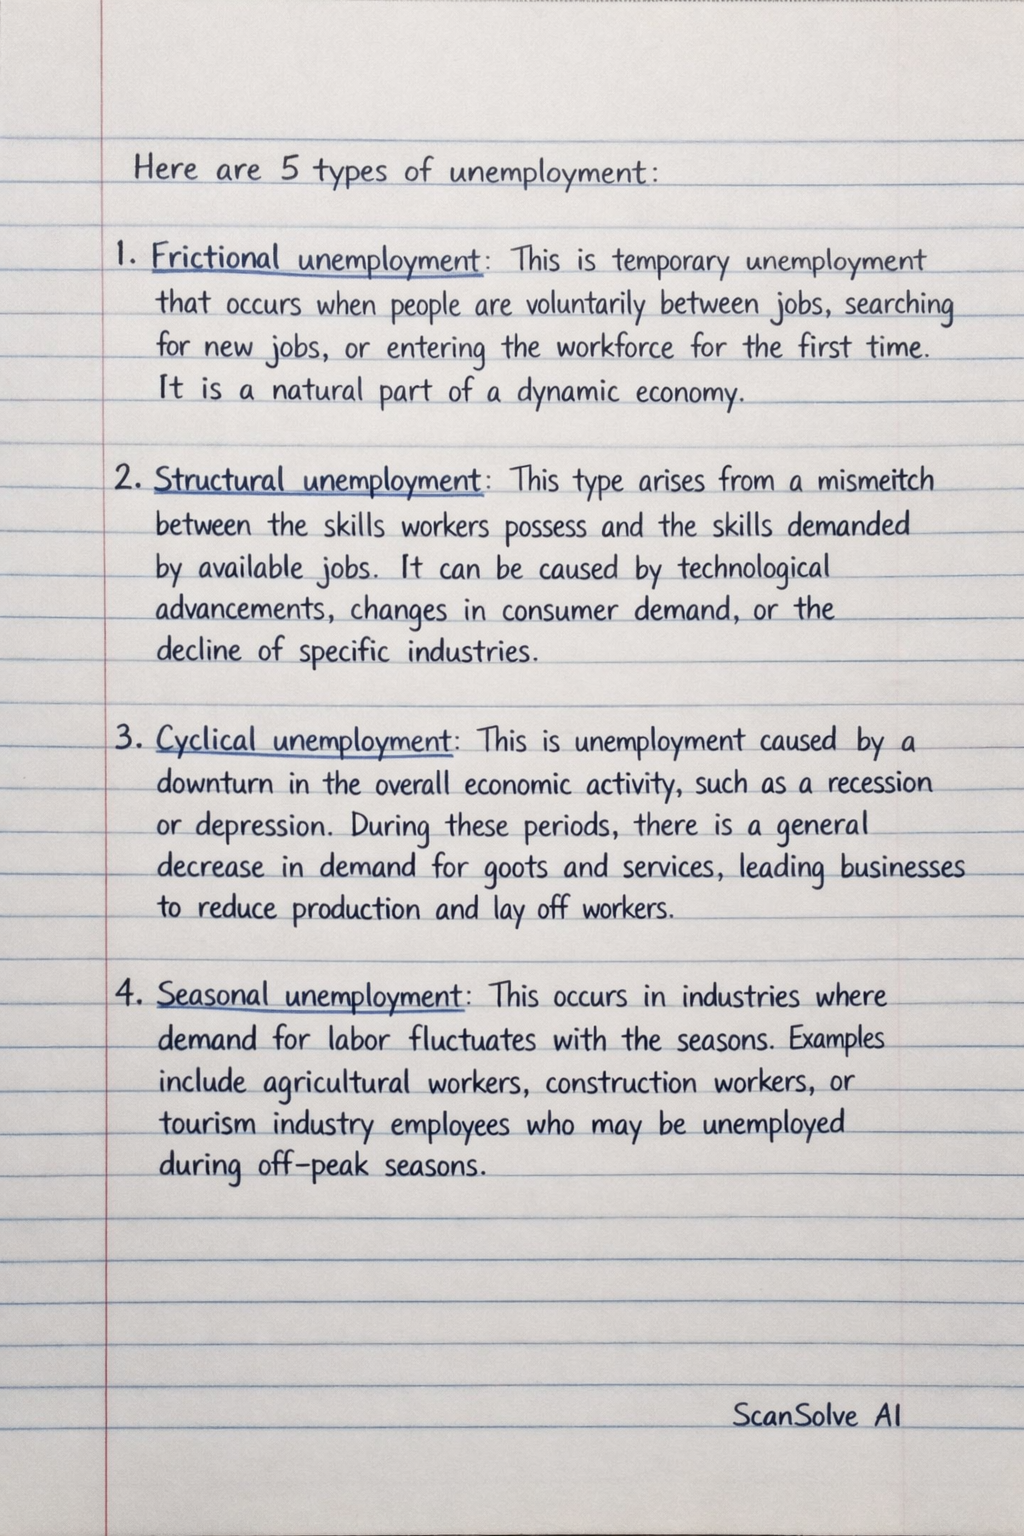 Here are 5 types of unemployment:
1. Frictional unemployment: This is temporary unemployment
that occurs when people are voluntarily between jobs, searching
for new jobs, or entering the workforce for the first time.
It is a natural part of a dynamic economy.
2. Structural unemployment: This type arises from a mismeitch
between the skills workers possess and the skills demanded
by available jobs. It can be caused by technological
advancements, changes in consumer demand, or the
decline of specific industries.
3. Cyclical unemployment: This is unemployment caused by a
downturn in the overall economic activity, such as a recession
or depression. During these periods, there is a general
decrease in demand for goots and services, leading businesses
to reduce production and lay off workers.
4. Seasonal unemployment: This occurs in industries where
demand for labor fluctuates with the seasons. Examples
include agricultural workers, construction workers, or
tourism industry employees who may be unemployed
during off-peak seasons.
ScanSolve AI